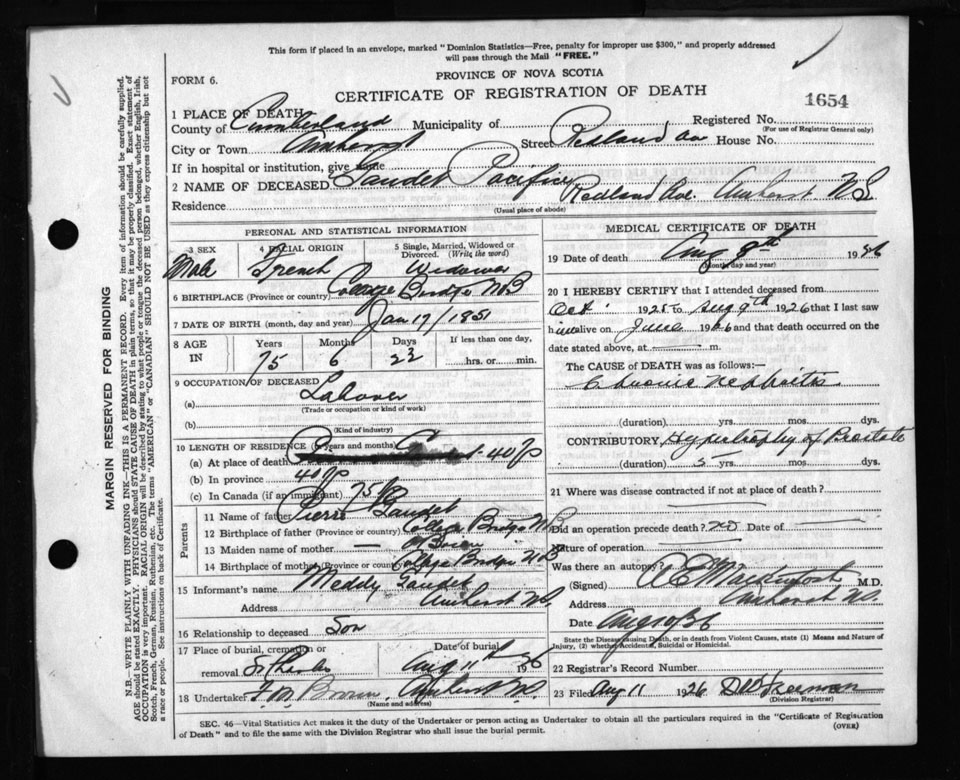 This form if placed in an envelope, marked "Dominion Statistics—Free, penalty for improper use $300," and properly addressed
will pass through the Mail "FREE."
FORM 6.
PROVINCE OF NOVA SCOTIA
CERTIFICATE OF REGISTRATION OF DEATH
1654
1 PLACE OF DEATH
County of Cumberland Municipality of Registered No.
(For use of Registrar General only)
City or Town Amherst Street Redland Ave House No.
If in hospital or institution, give name
2 NAME OF DECEASED Gaudet Pacifique
Residence Redland Ave. Amherst N.S.
(Usual place of abode)
PERSONAL AND STATISTICAL INFORMATION
3 SEX 4 RACIAL ORIGIN 5 Single, Married, Widowed or
Divorced. (Write the word)
Male French Widower
6 BIRTHPLACE (Province or country) College Bridge NB
7 DATE OF BIRTH (month, day and year) Jan 17/1851
8 AGE Years Months Days If less than one day,
IN 75 6 23 hrs. or min.
9 OCCUPATION OF DECEASED
(a) Laborer
(Trade or occupation or kind of work)
(b)
(Kind of industry)
10 LENGTH OF RESIDENCE (in years and months)
(a) At place of death 40
(b) In province
(c) In Canada (if an immigrant) 75
Parents
11 Name of father Pierre Gaudet
12 Birthplace of father (Province or country) College Bridge NB
13 Maiden name of mother —
14 Birthplace of mother (Province or country) College Bridge NB
15 Informant's name Meddy Gaudet
Address Amherst N.S.
16 Relationship to deceased Son
17 Place of burial, cremation or
removal Aug 11th 1926
18 Undertaker F. M. Brown, Amherst N.S.
(Name and address)
MEDICAL CERTIFICATE OF DEATH
19 Date of death Aug 9th 1926
(Month, day and year)
20 I HEREBY CERTIFY that I attended deceased from
Oct 1925 to Aug 9th 1926 that I last saw
him alive on June 1926 and that death occurred on
the date stated above, at m.
The CAUSE OF DEATH was as follows:—
Chronic Nephritis
(duration) yrs. mos. dys.
CONTRIBUTORY Hypertrophy of Prostate
(duration) 5 yrs. mos. dys.
21 Where was disease contracted if not at place of death?
Did an operation precede death? No Date of
Nature of operation
Was there an autopsy?
(Signed) Mackintosh M.D.
Address Amherst N.S.
Date Aug 10/26
State the Disease causing Death, or in death from Violent Causes, state (1) Means and Nature of
Injury, (2) whether Accidental, Suicidal or Homicidal.
22 Registrar's Record Number
23 Filed Aug 11 1926 Freeman
(Division Registrar)
SEC. 46—Vital Statistics Act makes it the duty of the Undertaker or person acting as Undertaker to obtain all the particulars required in the "Certificate of Registration
of Death" and to file the same with the Division Registrar who shall issue the burial permit.
(OVER)
MARGIN RESERVED FOR BINDING
N.B.—WRITE PLAINLY WITH UNFADING INK—THIS IS A PERMANENT RECORD. Every item of information should be carefully supplied.
AGE should be stated EXACTLY. PHYSICIANS should STATE CAUSE OF DEATH in plain terms, so that it may be properly classified. Exact statement of
OCCUPATION is very important. RACIAL ORIGIN will be described by stating to what people or tongue the deceased person belonged, whether English, Irish,
Scotch, French, German, Russian, Ruthenian, etc. The terms "AMERICAN" or "CANADIAN" SHOULD NOT BE USED as they express citizenship but not
a race or people. See instructions on back of Certificate.